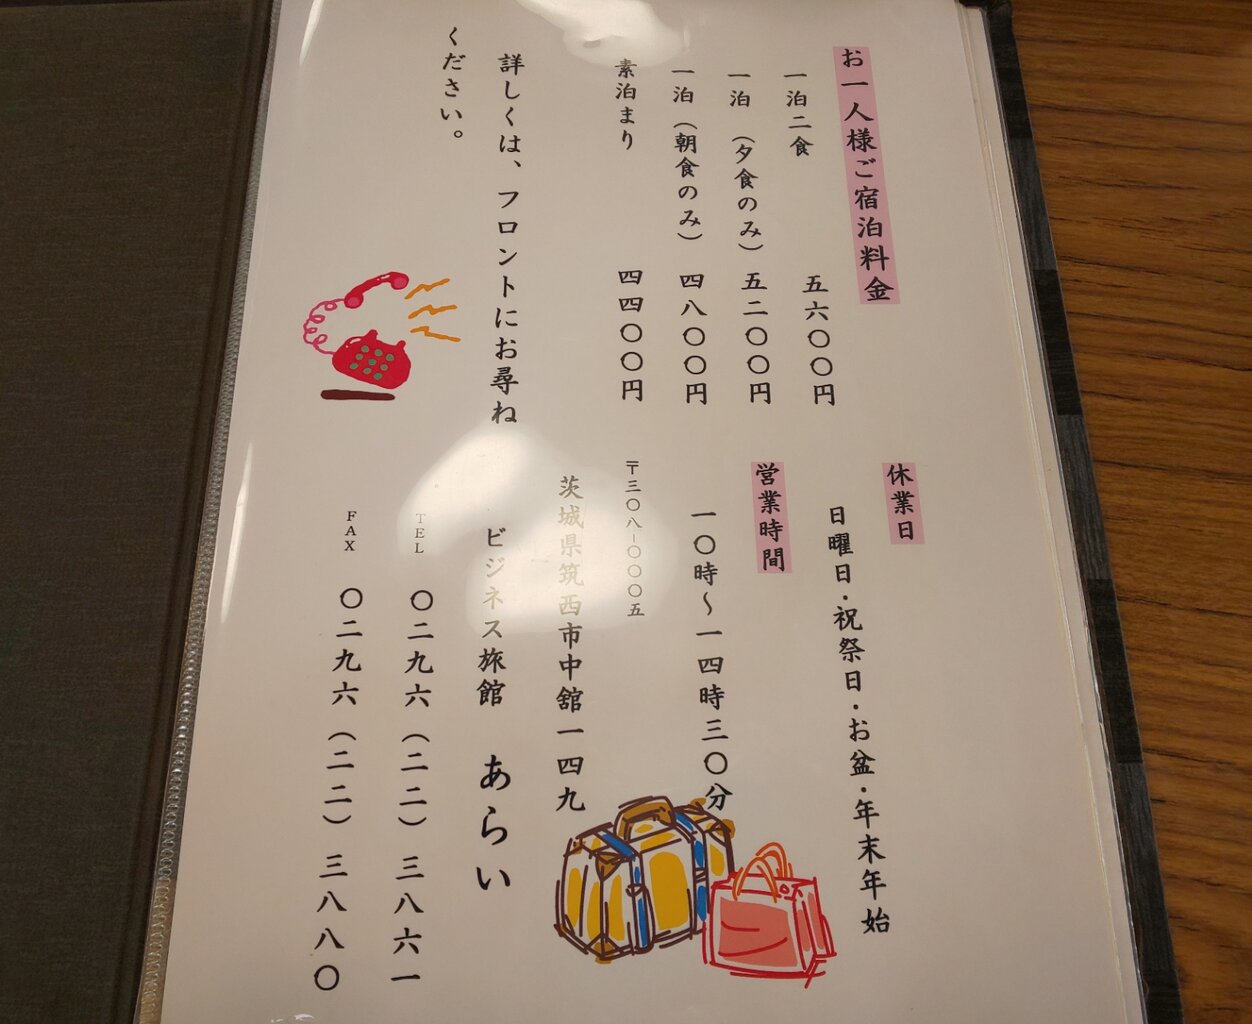 お一人様ご宿泊料金
一泊二食 五六〇〇円
一泊 （夕食のみ） 五二〇〇円
一泊（朝食のみ） 四八〇〇円
素泊まり 四四〇〇円
詳しくは、フロントにお尋ね
ください。
休業日
日曜日・祝祭日・お盆・年末年始
営業時間
一〇時～一四時三〇分
〒三〇八-〇〇〇五
茨城県筑西市中舘一四九
ビジネス旅館 あらい
TEL 〇二九六（二二）三八六一
FAX 〇二九六（二二）三八八〇